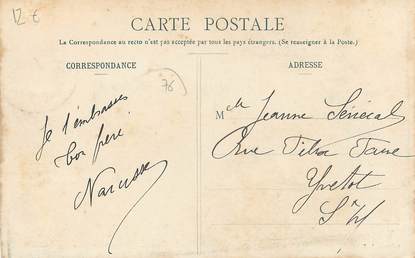 12 €
CARTE POSTALE
La Correspondance au recto n'est pas acceptée par tous les pays étrangers. (Se renseigner à la Poste.)
CORRESPONDANCE
ADRESSE
76
Je t'embrasse
ton père
Narcisse
Melle Jeanne Sénécal
Rue
Yvetot
S. Inf